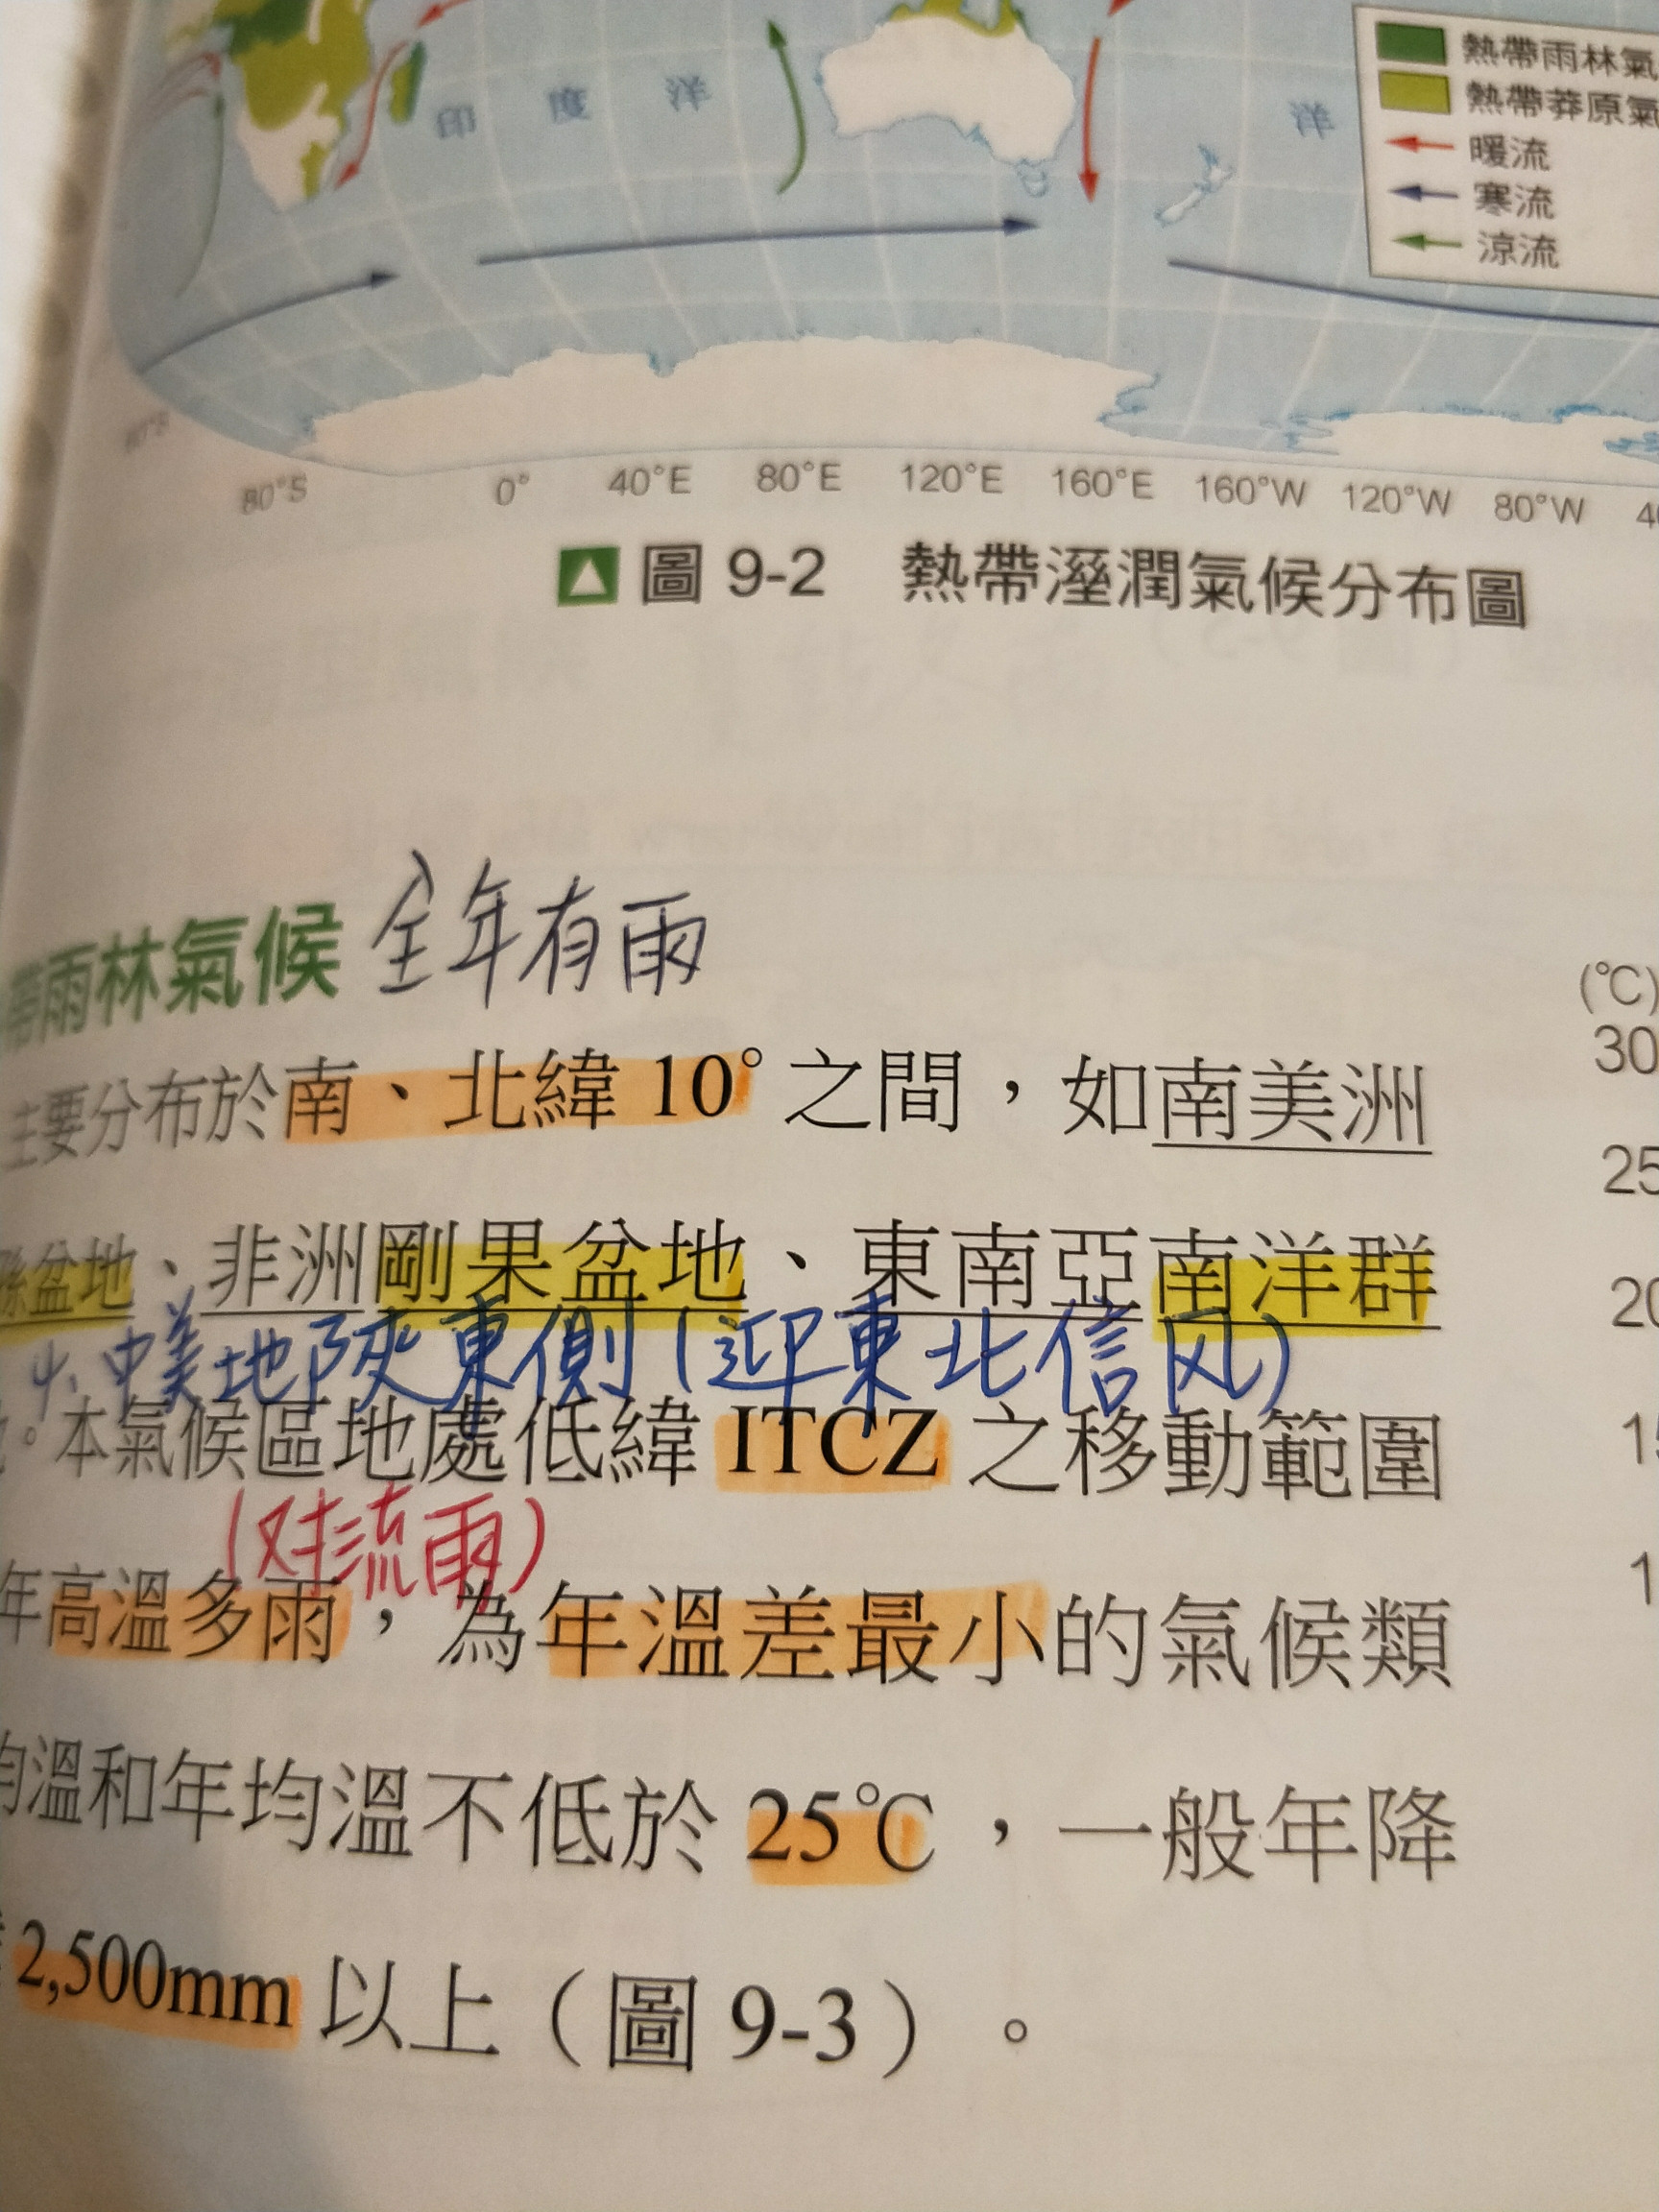 熱帶雨林氣
熱帶莽原氣
暖流
寒流
涼流
印度洋
洋
80°S 0° 40°E 80°E 120°E 160°E 160°W 120°W 80°W
圖 9-2 熱帶溼潤氣候分布圖
帶雨林氣候 全年有雨
主要分布於南、北緯 10° 之間，如南美洲
盆地、非洲剛果盆地、東南亞南洋群
中美地陝東側(迎東北信风)
。本氣候區地處低緯 ITCZ 之移動範圍
(对流雨)
年高溫多雨，為年溫差最小的氣候類
均溫和年均溫不低於 25℃，一般年降
2,500mm 以上（圖 9-3）。
(℃)
30
25
20
15